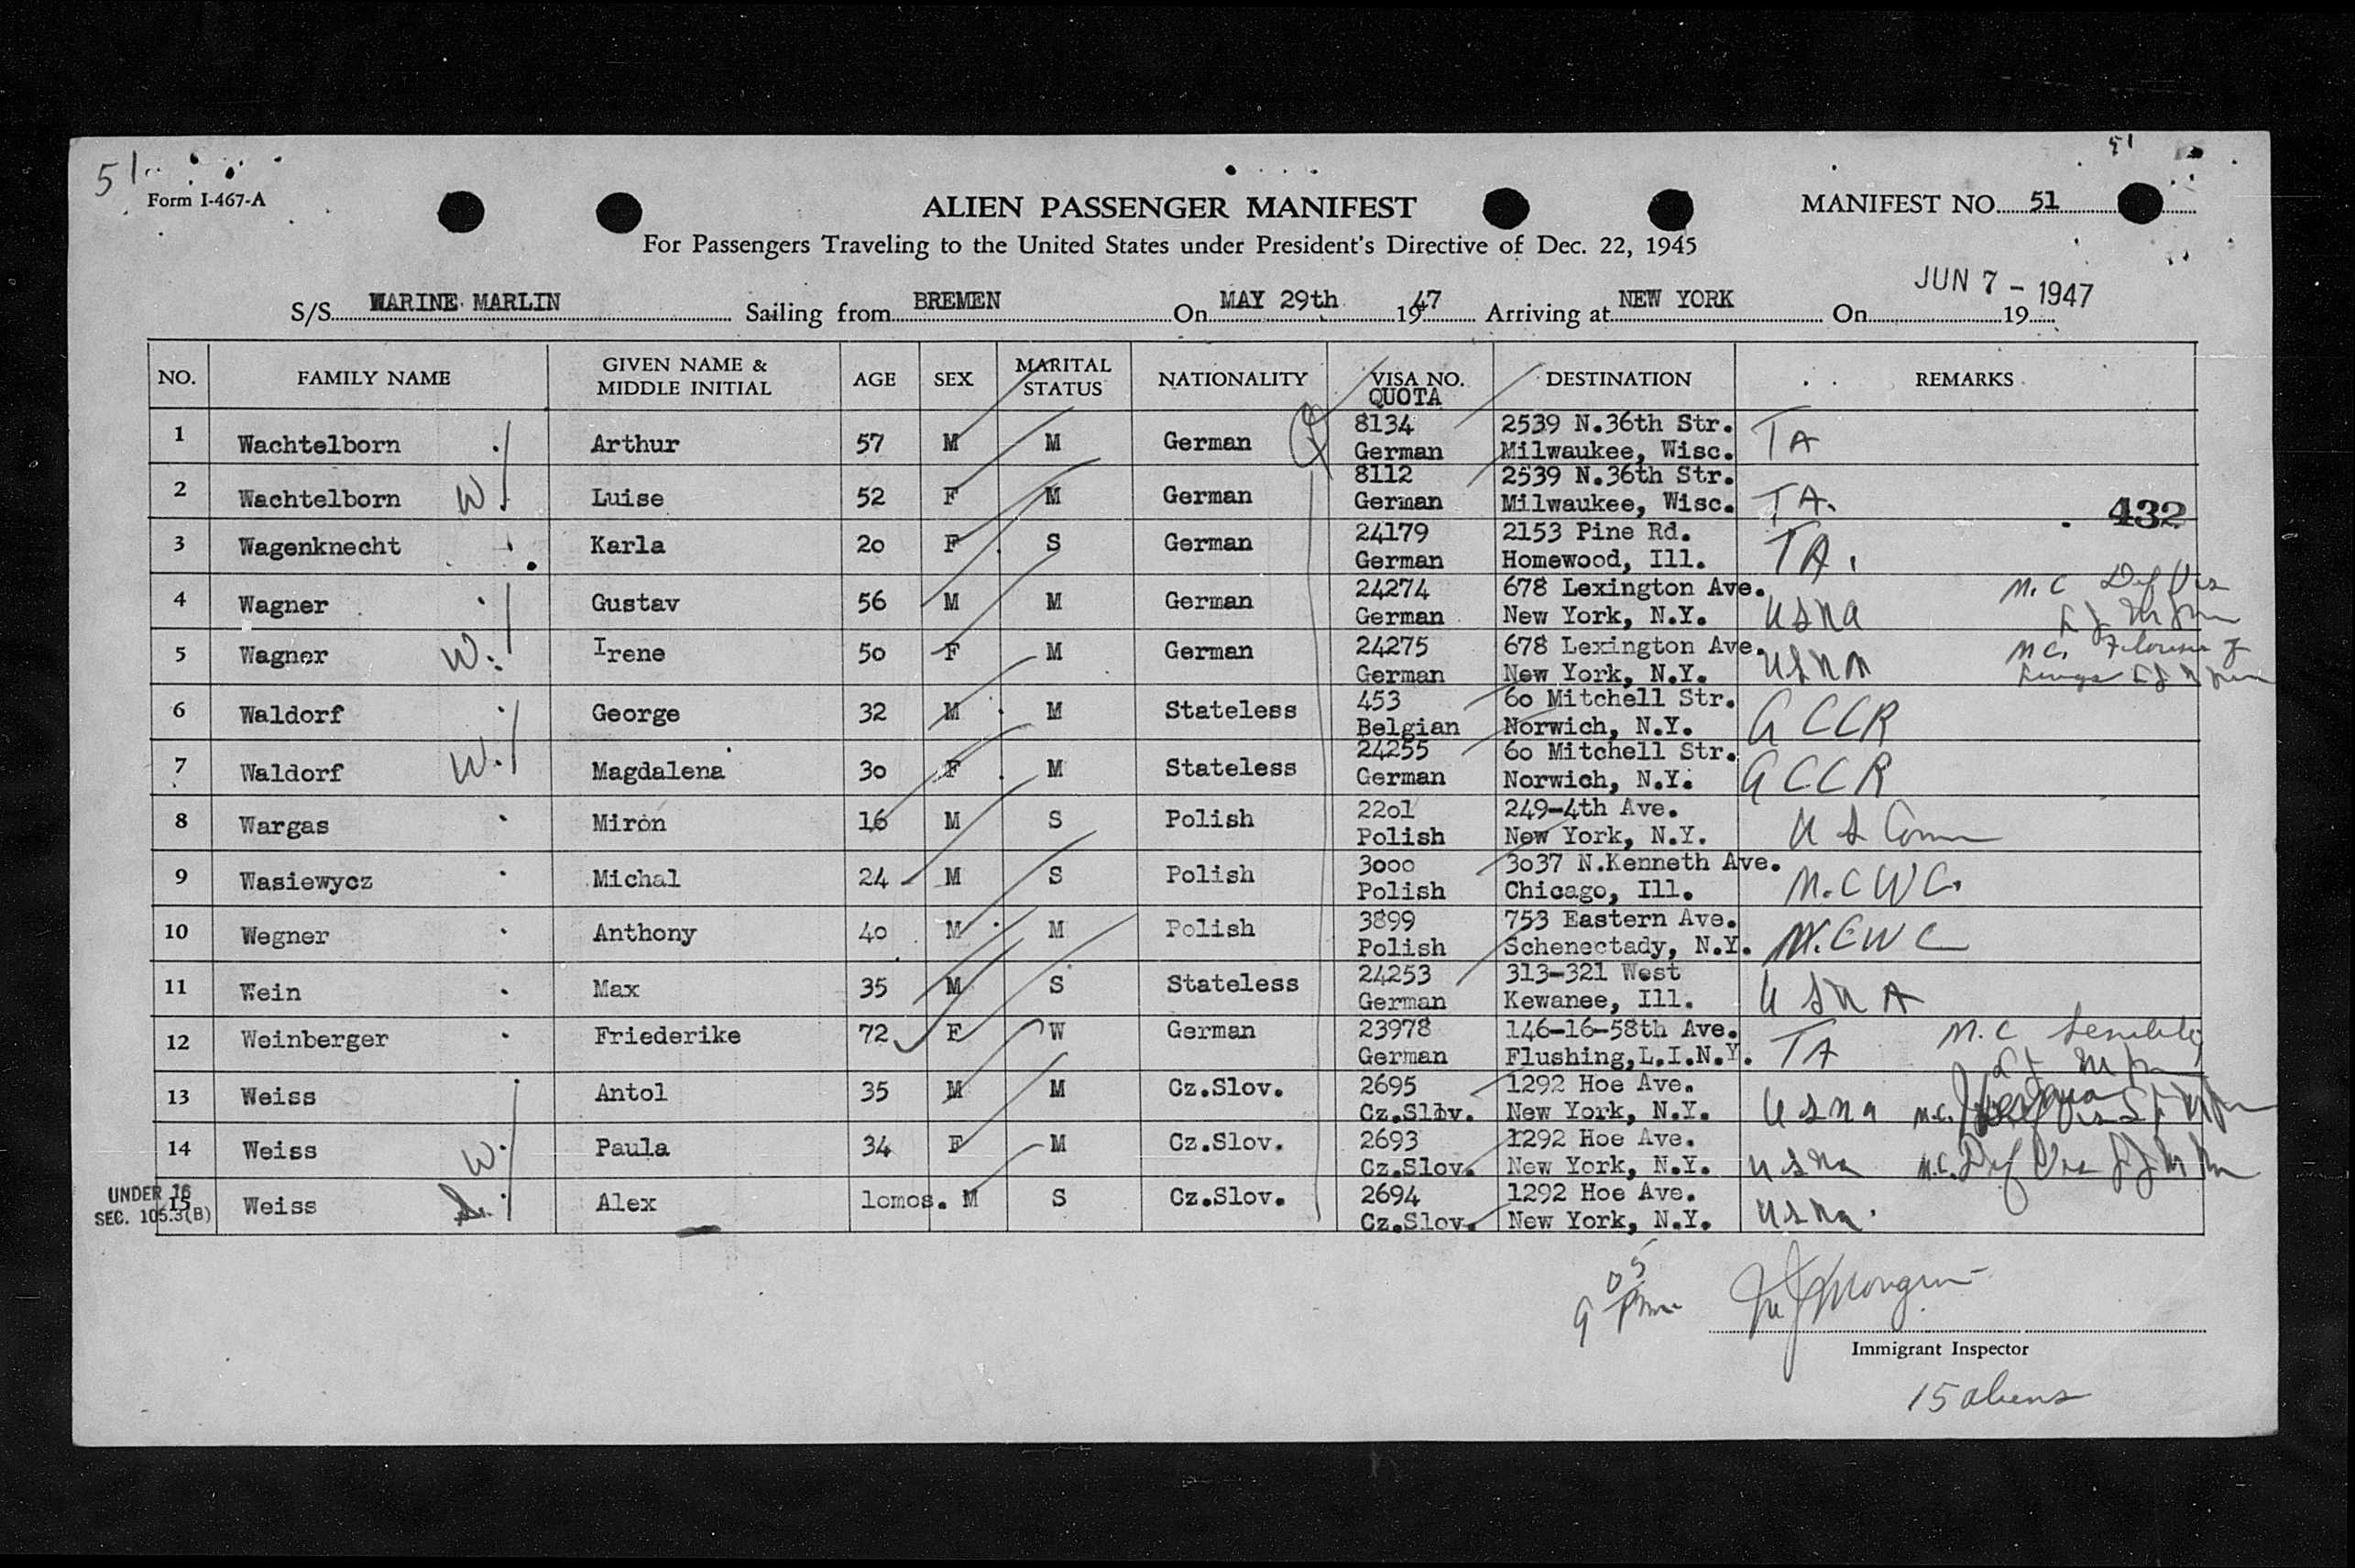 51
51
Form I-467-A
ALIEN PASSENGER MANIFEST
MANIFEST NO. 51
For Passengers Traveling to the United States under President's Directive of Dec. 22, 1945
JUN 7 - 1947
S/S MARINE MARLIN Sailing from BREMEN On MAY 29th 1947 Arriving at NEW YORK On 19
NO. FAMILY NAME GIVEN NAME & MIDDLE INITIAL AGE SEX MARITAL STATUS NATIONALITY VISA NO. QUOTA DESTINATION REMARKS
1 Wachtelborn Arthur 57 M M German 8134 German 2539 N.36th Str. Milwaukee, Wisc. TA
2 Wachtelborn W Luise 52 F M German 8112 German 2539 N.36th Str. Milwaukee, Wisc. TA. 432
3 Wagenknecht Karla 20 F S German 24179 German 2153 Pine Rd. Homewood, Ill. TA.
4 Wagner Gustav 56 M M German 24274 German 678 Lexington Ave. New York, N.Y. USNA M.C Def Vis
5 Wagner W. Irene 50 F M German 24275 German 678 Lexington Ave. New York, N.Y. USNA M.C.
6 Waldorf George 32 M M Stateless 453 Belgian 60 Mitchell Str. Norwich, N.Y. ACCR
7 Waldorf W. Magdalena 30 F M Stateless 24255 German 60 Mitchell Str. Norwich, N.Y. ACCR
8 Wargas Miron 16 M S Polish 2201 Polish 249-4th Ave. New York, N.Y. U S Comm
9 Wasiewycz Michal 24 M S Polish 3000 Polish 3037 N.Kenneth Ave. Chicago, Ill. N.C W C.
10 Wegner Anthony 40 M M Polish 3899 Polish 753 Eastern Ave. Schenectady, N.Y. N.C W C
11 Wein Max 35 M S Stateless 24253 German 313-321 West Kewanee, Ill. USNA
12 Weinberger Friederike 72 F W German 23978 German 146-16-58th Ave. Flushing,L.I.N.Y. TA M.C
13 Weiss Antol 35 M M Cz.Slov. 2695 Cz.Slov. 1292 Hoe Ave. New York, N.Y. USNA M.C.
14 Weiss W. Paula 34 F M Cz.Slov. 2693 Cz.Slov. 1292 Hoe Ave. New York, N.Y. USNA M.C. Def Vis
UNDER 16 SEC. 105.3(B) 15 Weiss Alex 10mos. M S Cz.Slov. 2694 Cz.Slov. 1292 Hoe Ave. New York, N.Y. USNA.
9 05
Immigrant Inspector
15 aliens